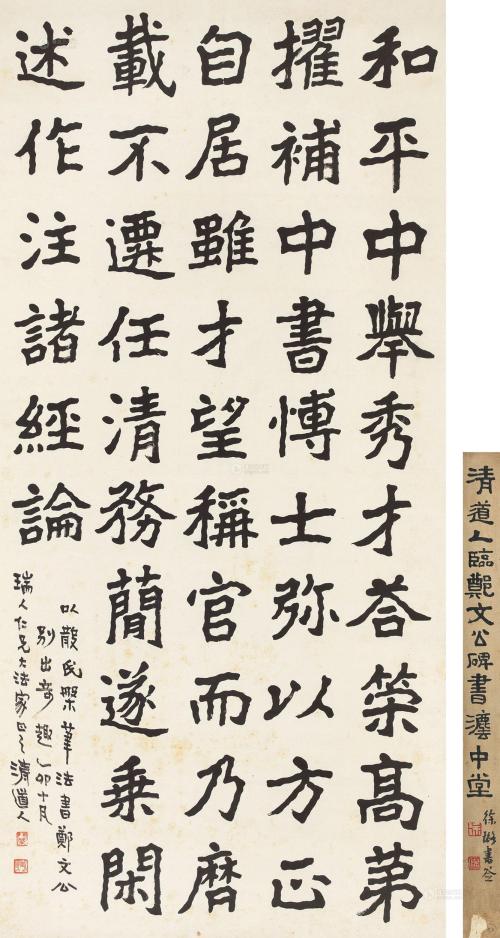 和平中舉秀才荅策高第
擢補中書愽士弥以方正
自居雖才望稱官而乃歷
載不遷任清務簡遂乘閑
述作注諸經論
以散氏槃筆法書鄭文公
別出奇趣乙卯十月
瑞人仁兄大法家正之清道人
清道人臨鄭文公碑書灋中堂
徐
書簽